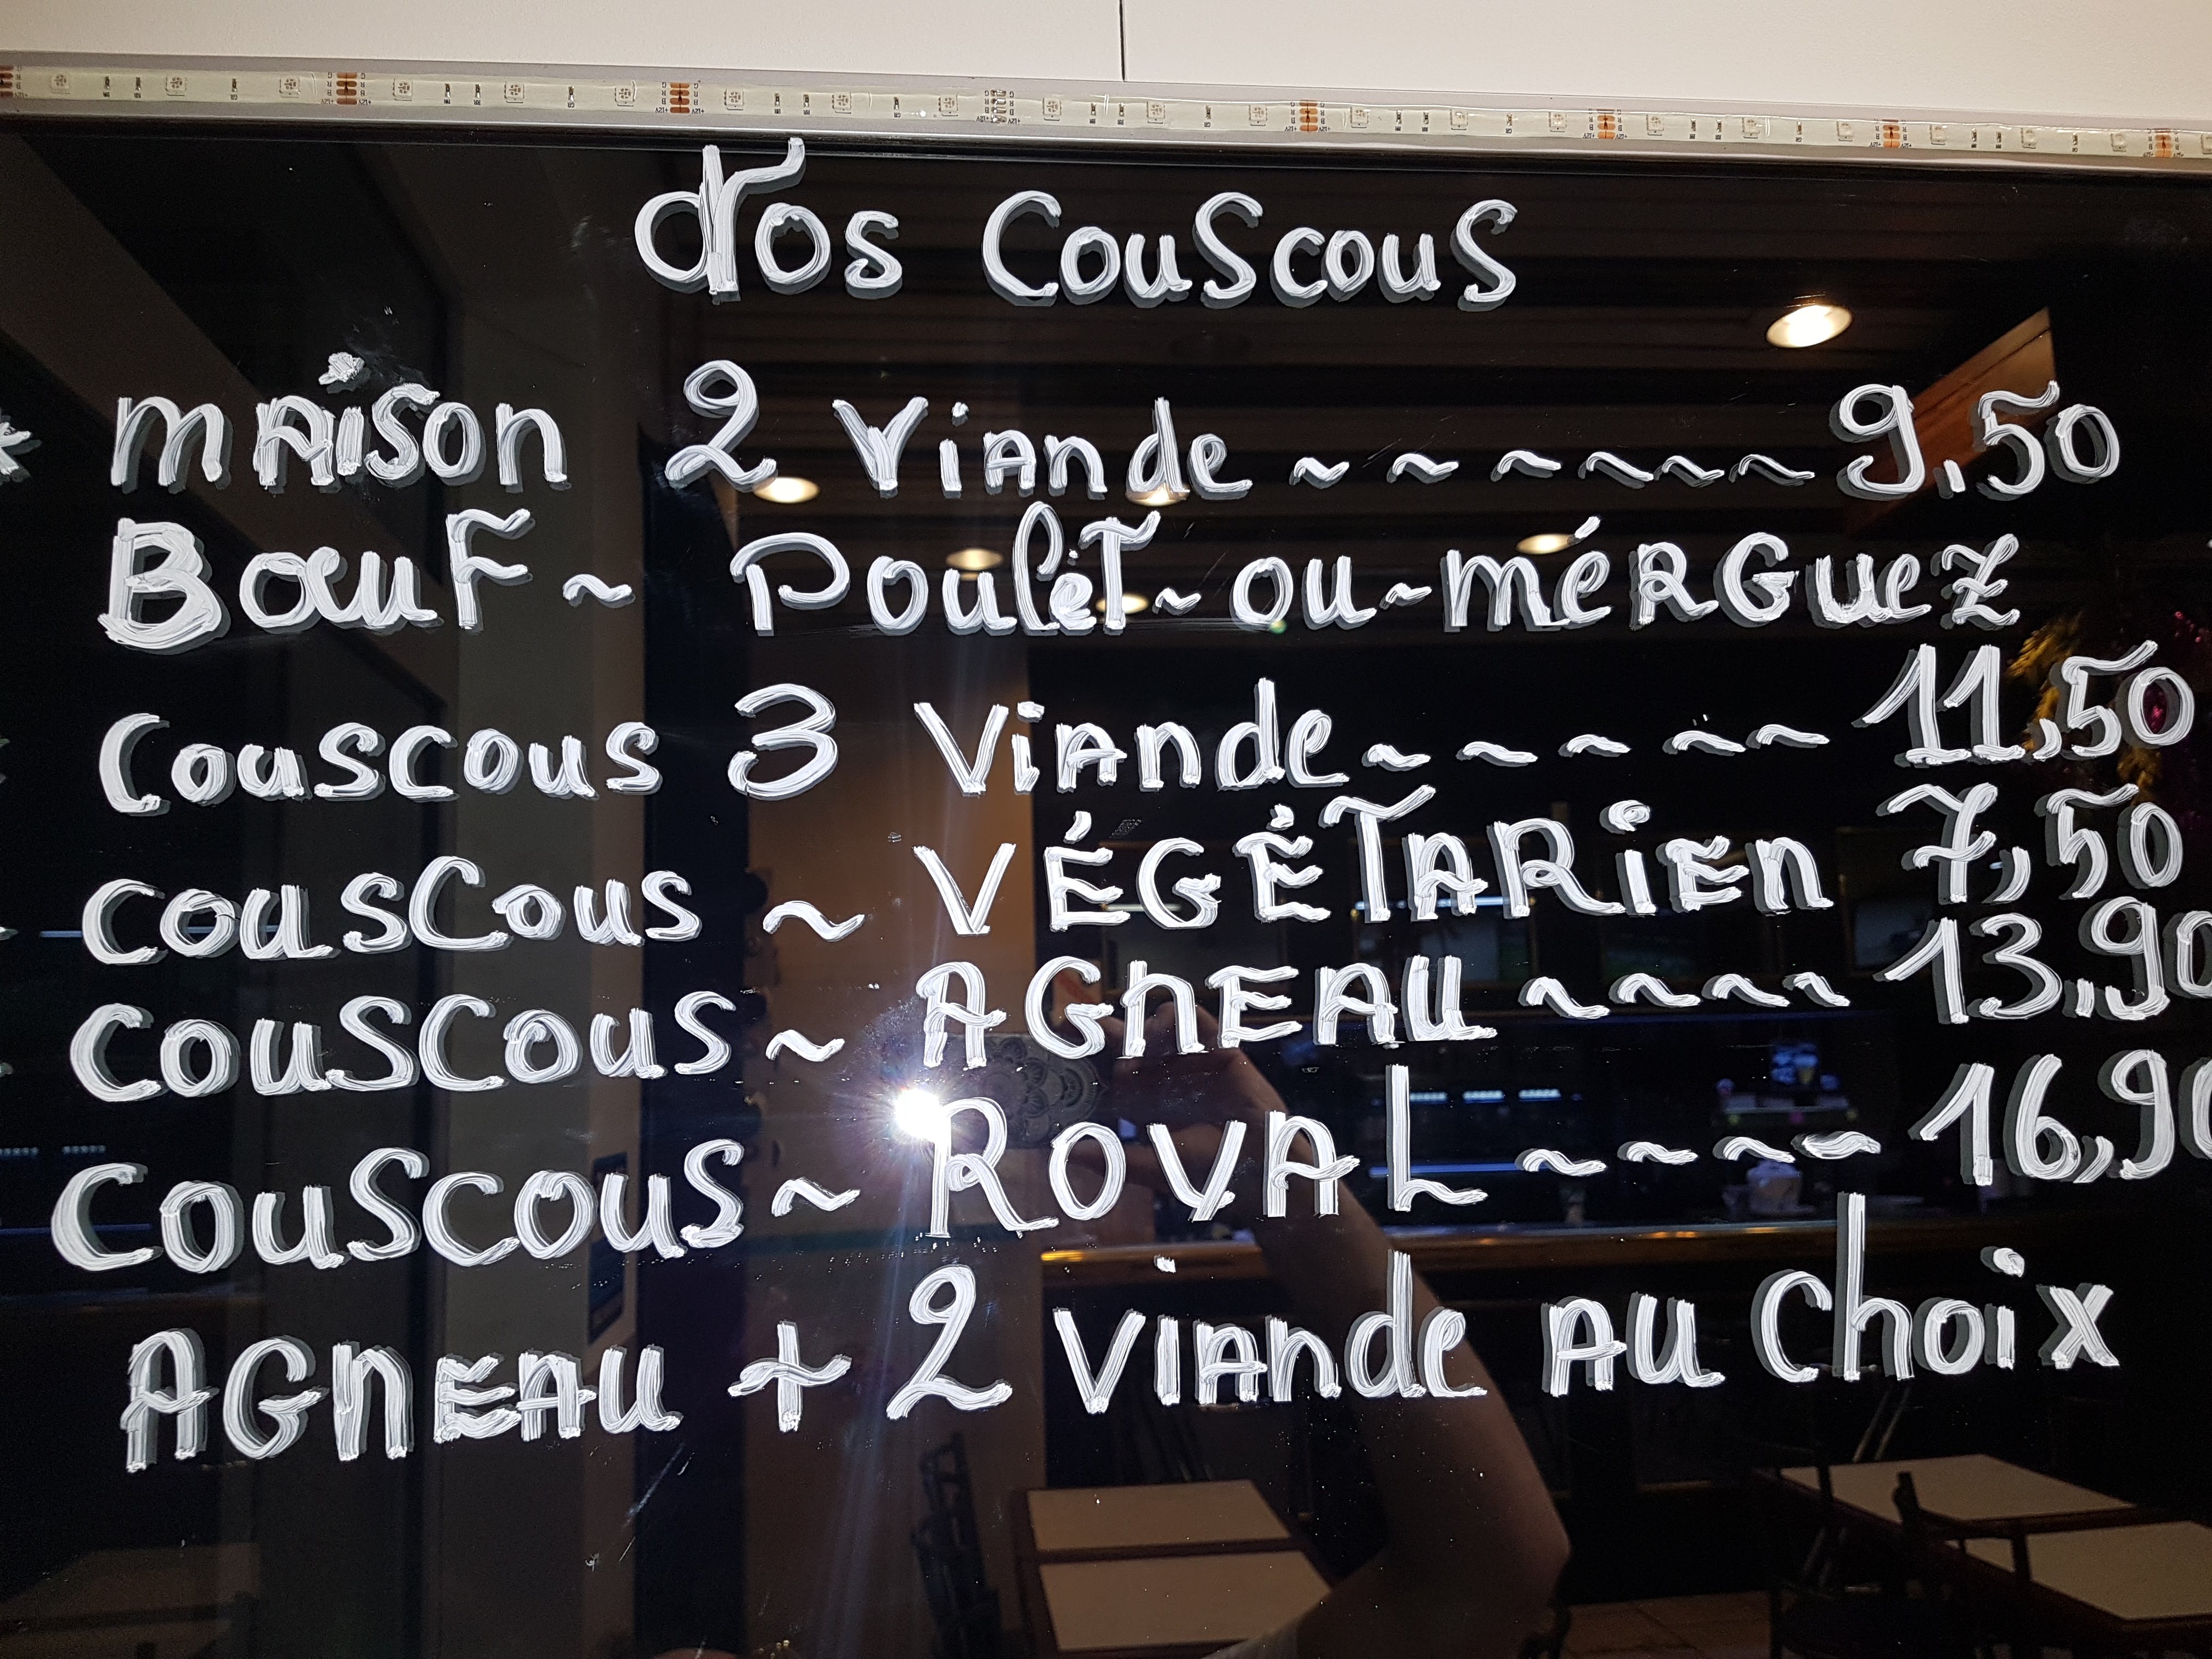 Nos Couscous
* maison 2 Viande ~~~~~~ 9,50
Bœuf ~ Poulet ~ ou ~ mérguez
Couscous 3 Viande ~~~~~ 11,50
Couscous ~ VÉGÉTARiEn 7,50
Couscous ~ AGnEAU ~~~~ 13,90
Couscous ~ ROYAL ~~~~ 16,90
AGnEAU + 2 Viande AU Choix